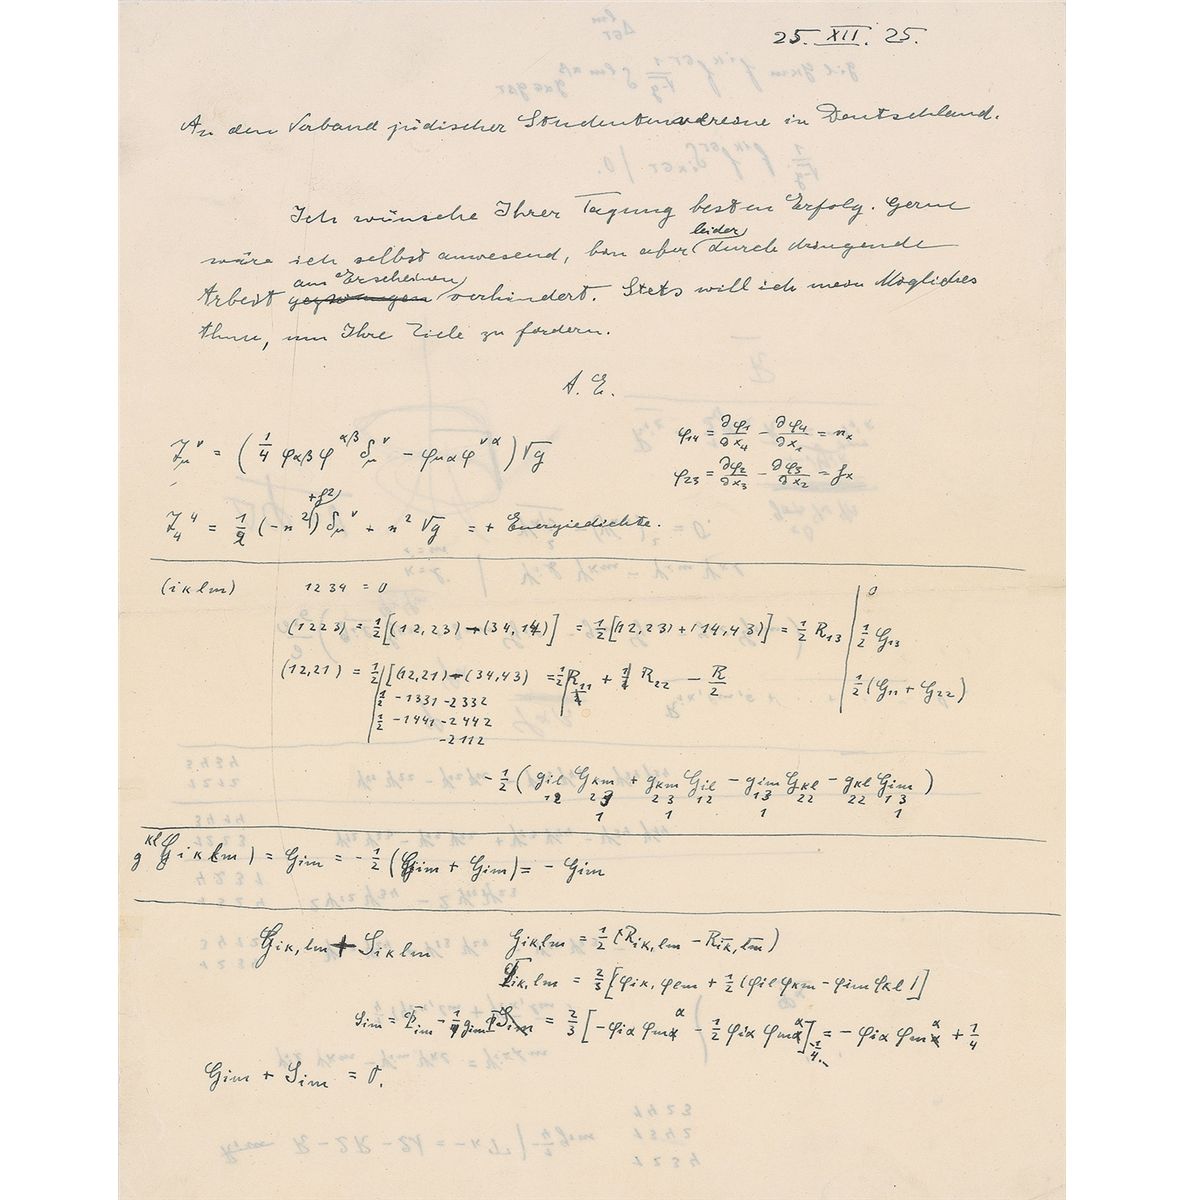 25. XII. 25.
An den Verband jüdischer Studentenvereine in Deutschland.
Ich wünsche Ihrer Tagung besten Erfolg. Gerne
wäre ich selbst anwesend, bin aber leider durch dringende
Arbeit am Erscheinen verhindert. Stets will ich mein Mögliches
thun, um Ihre Ziele zu fördern.
A. E.
φ₁₄ = ∂φ₁/∂x₄ − ∂φ₄/∂x₁ = n_x
T_μ^ν = (1/4 φ_αβ φ^αβ δ_μ^ν − φ_μα φ^να) √g
φ₂₃ = ∂φ₂/∂x₃ − ∂φ₃/∂x₂ = f_x
T_4^4 = 1/2 (−n² + f²) δ_μ^ν + n² √g = + Energiedichte.
(iklm) 1234 = 0 0
(1223) = 1/2 [(12,23) + (34,14)] = 1/2 [(12,23) + (14,43)] = 1/2 R₁₃ 1/2 G₁₃
(12,21) = 1/2 [(12,21) − (34,43) = 1/2 R₁₁ + 1/2 R₂₂ − R/2 1/2 (G₁₁ + G₂₂)
1/2 −1331 −2332
1/2 −1441 −2442
−2112
−1/2 (g_il G_km + g_km G_il − g_im G_kl − g_kl G_im)
12 23 23 12 13 22 22 13
1 1 1 1
g^kl (G_iklm) = G_im = −1/2 (G_im + G_im) = − G_im
G_ik,lm + S_iklm G_ik,lm = 1/2 (R_ik,lm − R_ik,lm)
_ik,lm = 2/3 [φ_ik, φ_lm + 1/2 (φ_il φ_km − φ_im φ_kl)]
S_im = _im − 1/4 g_im = 2/3 [−φ_iα φ_m^α − 1/2 φ_iα φ_m^α] −1/4.. = − φ_iα φ_m^α + 1/4
G_im + S_im = 0.